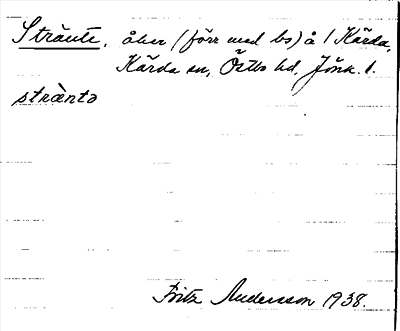 Stränte, åker (förr med bs) å 1 Kärda,
Kärda sn, Östbo hd, Jönk. l.
stràntə
Fritz Andersson 1938.